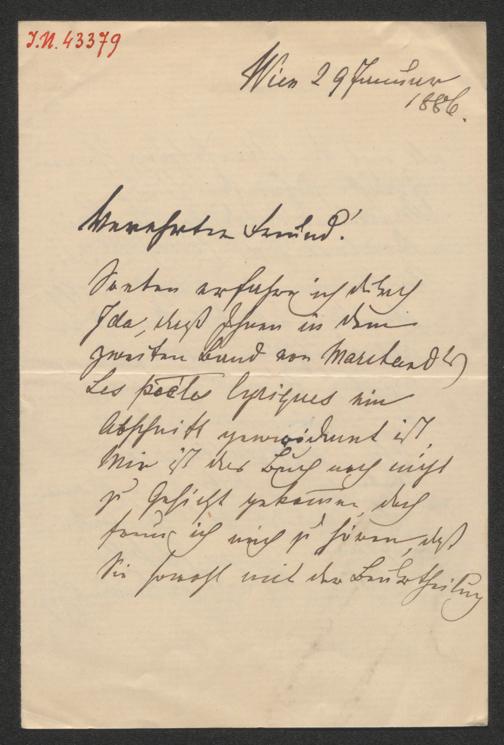 I.N. 43379
Wien 29 Januar
1886.
Verehrter Freund!
Soeben erfahre ich durch
Ida, daß Ihnen in dem
zweiten Band von Marchand's
Les poëtes lyriques ein
Abschnitt gewidmet ist.
Mir ist das Buch noch nicht
zu Gesicht gekommen, doch
freue ich mich zu hören, daß
Sie sowohl mit der Beurtheilung